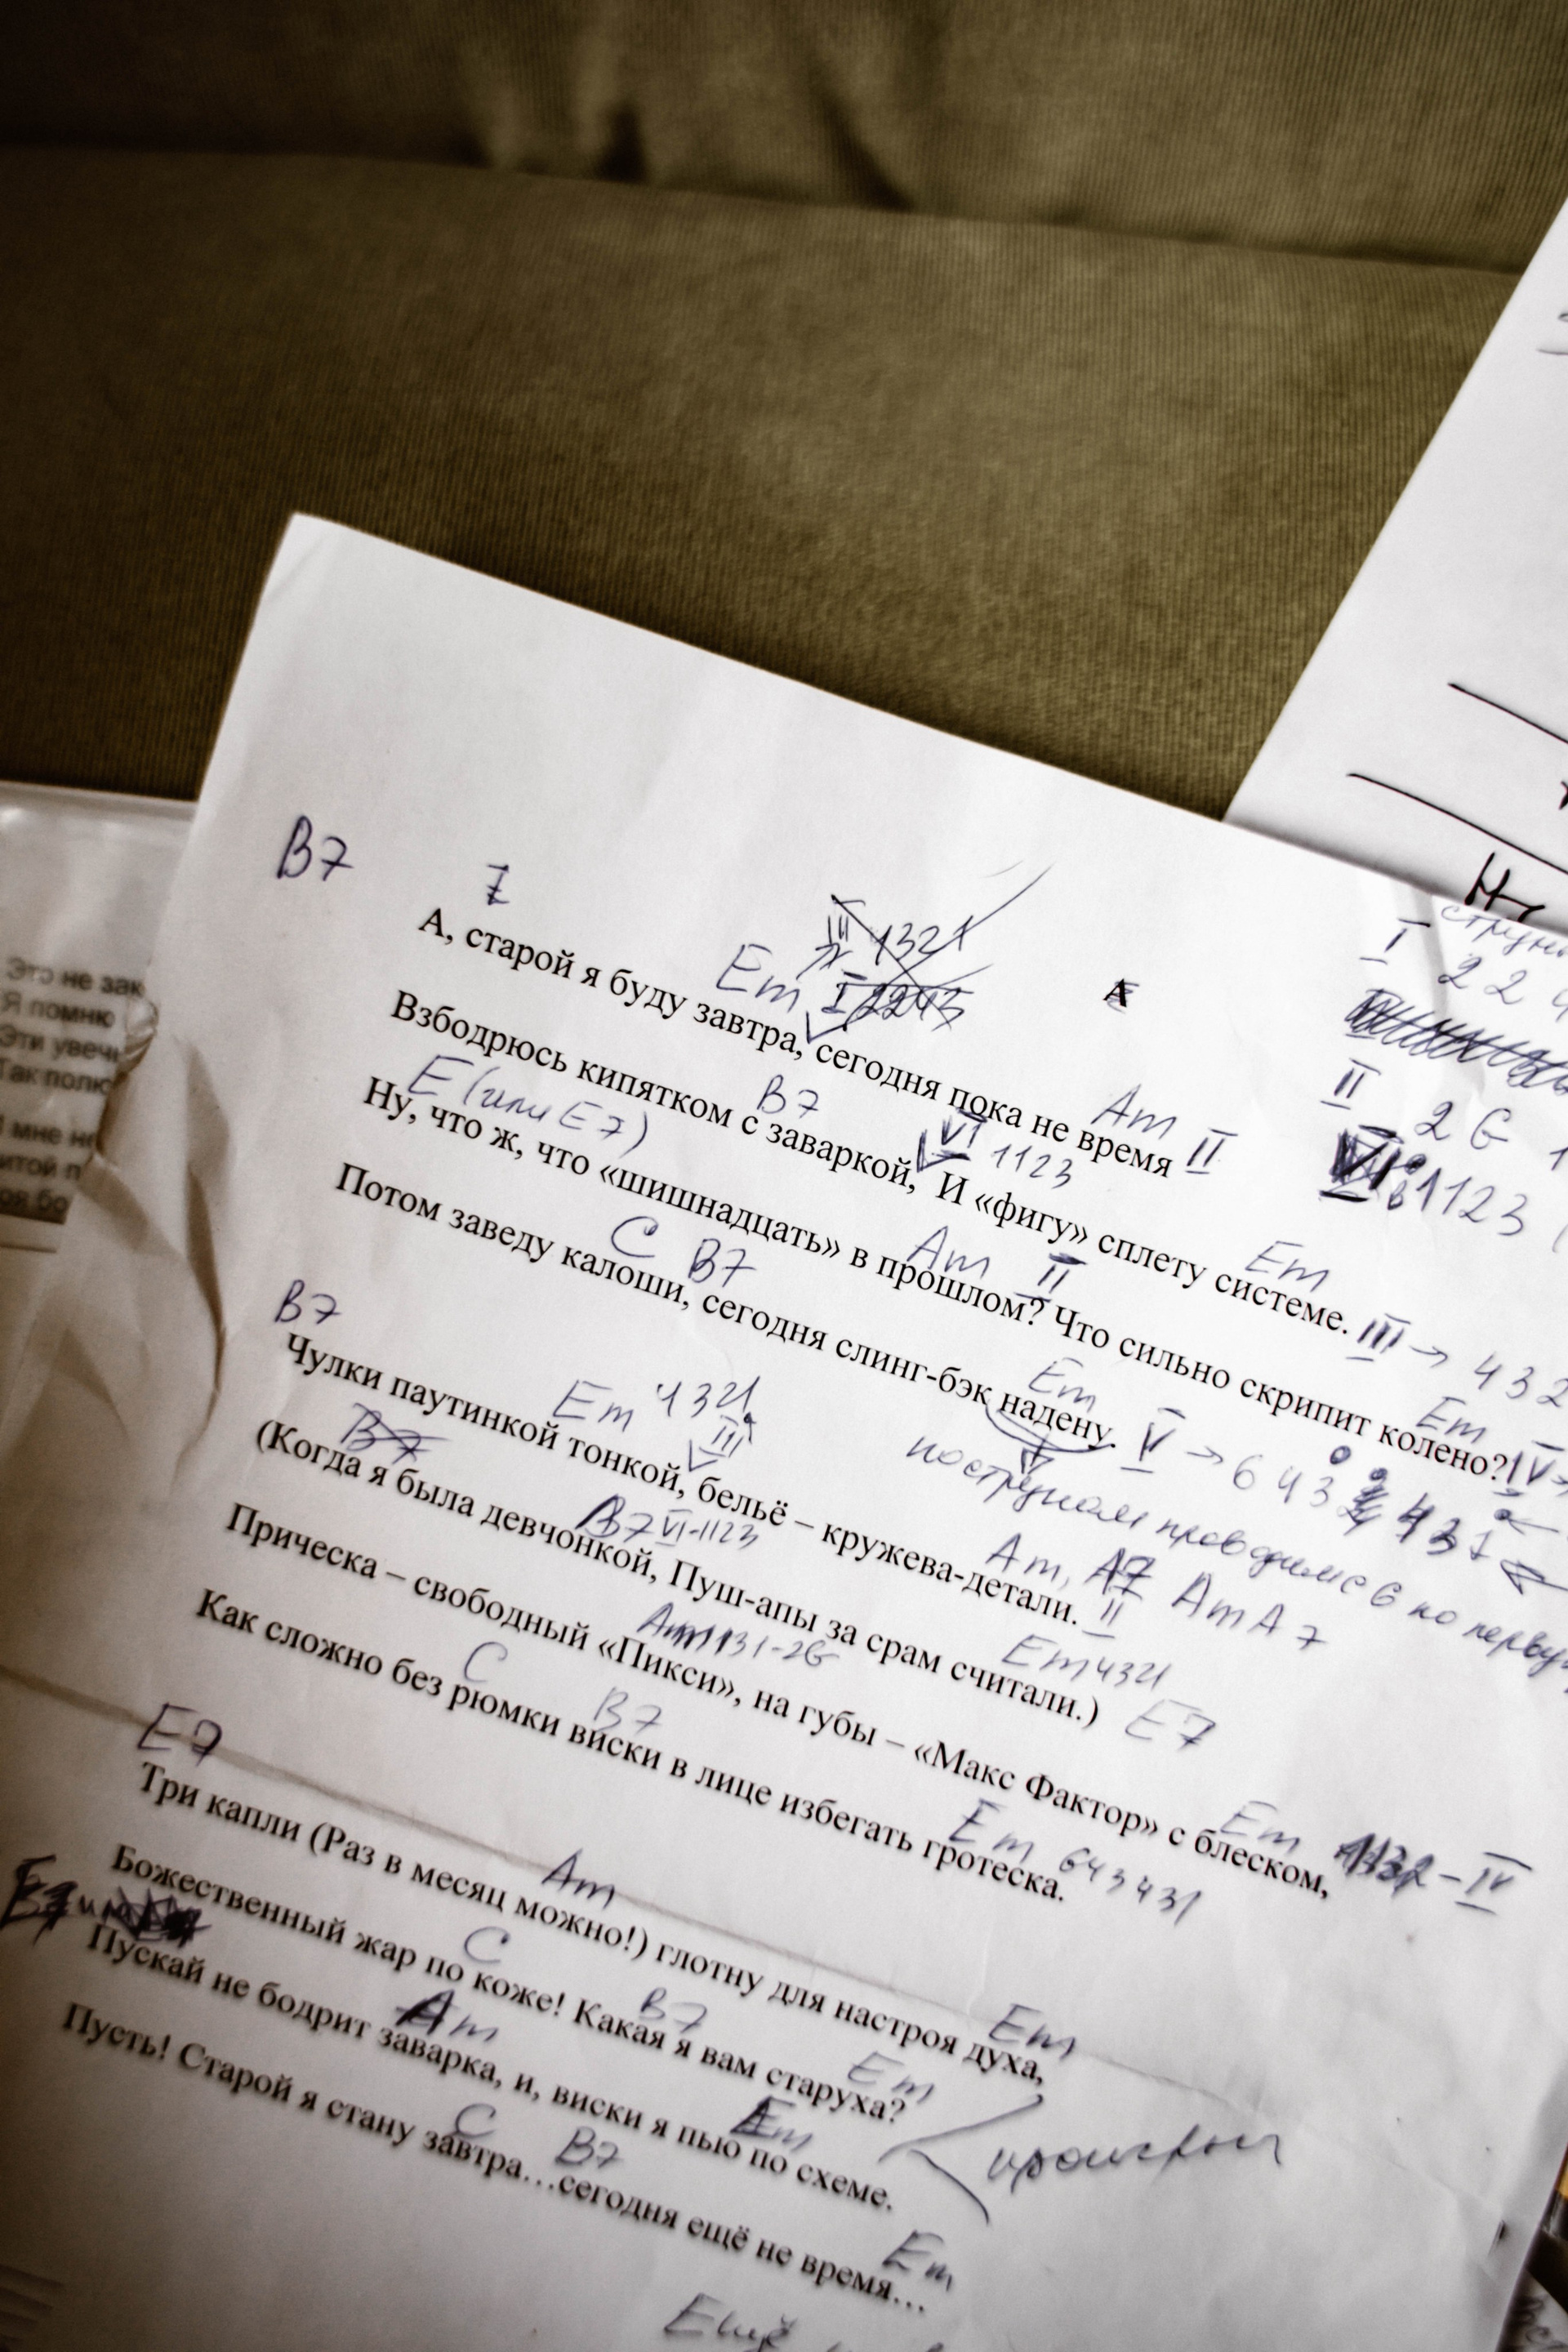 B7
A, старой я буду завтра, сегодня пока не время
Em Am II
Взбодрюсь кипятком с заваркой, И «фигу» сплету системе.
E (или E7) B7 VI 1123 Em III → 432
Ну, что ж, что «шишнадцать» в прошлом? Что сильно скрипит колено?
Am II Em IV
Потом заведу калоши, сегодня слинг-бэк надену.
C B7 Em V → 643 431
B7
Чулки паутинкой тонкой, бельё – кружева-детали.
Em 4321 III Am, A7 II Am A7
(Когда я была девчонкой, Пуш-апы за срам считали.)
B7 B7 VI-1123 Em 4321 E7
Прическа – свободный «Пикси», на губы – «Макс Фактор» с блеском,
Am Em IV
Как сложно без рюмки виски в лице избегать гротеска.
C B7 Em 643431
E7
Три капли (Раз в месяц можно!) глотну для настроя духа,
Am Em
Божественный жар по коже! Какая я вам старуха?
C B7 Em
Пускай не бодрит заварка, и, виски я пью по схеме.
Am Em
Пусть! Старой я стану завтра…сегодня ещё не время…
C B7 Em
проигрыш
Ещё
I 224
II 2 6
VI 1123
Это не зак
Я помню
Эти увеч
Так полю